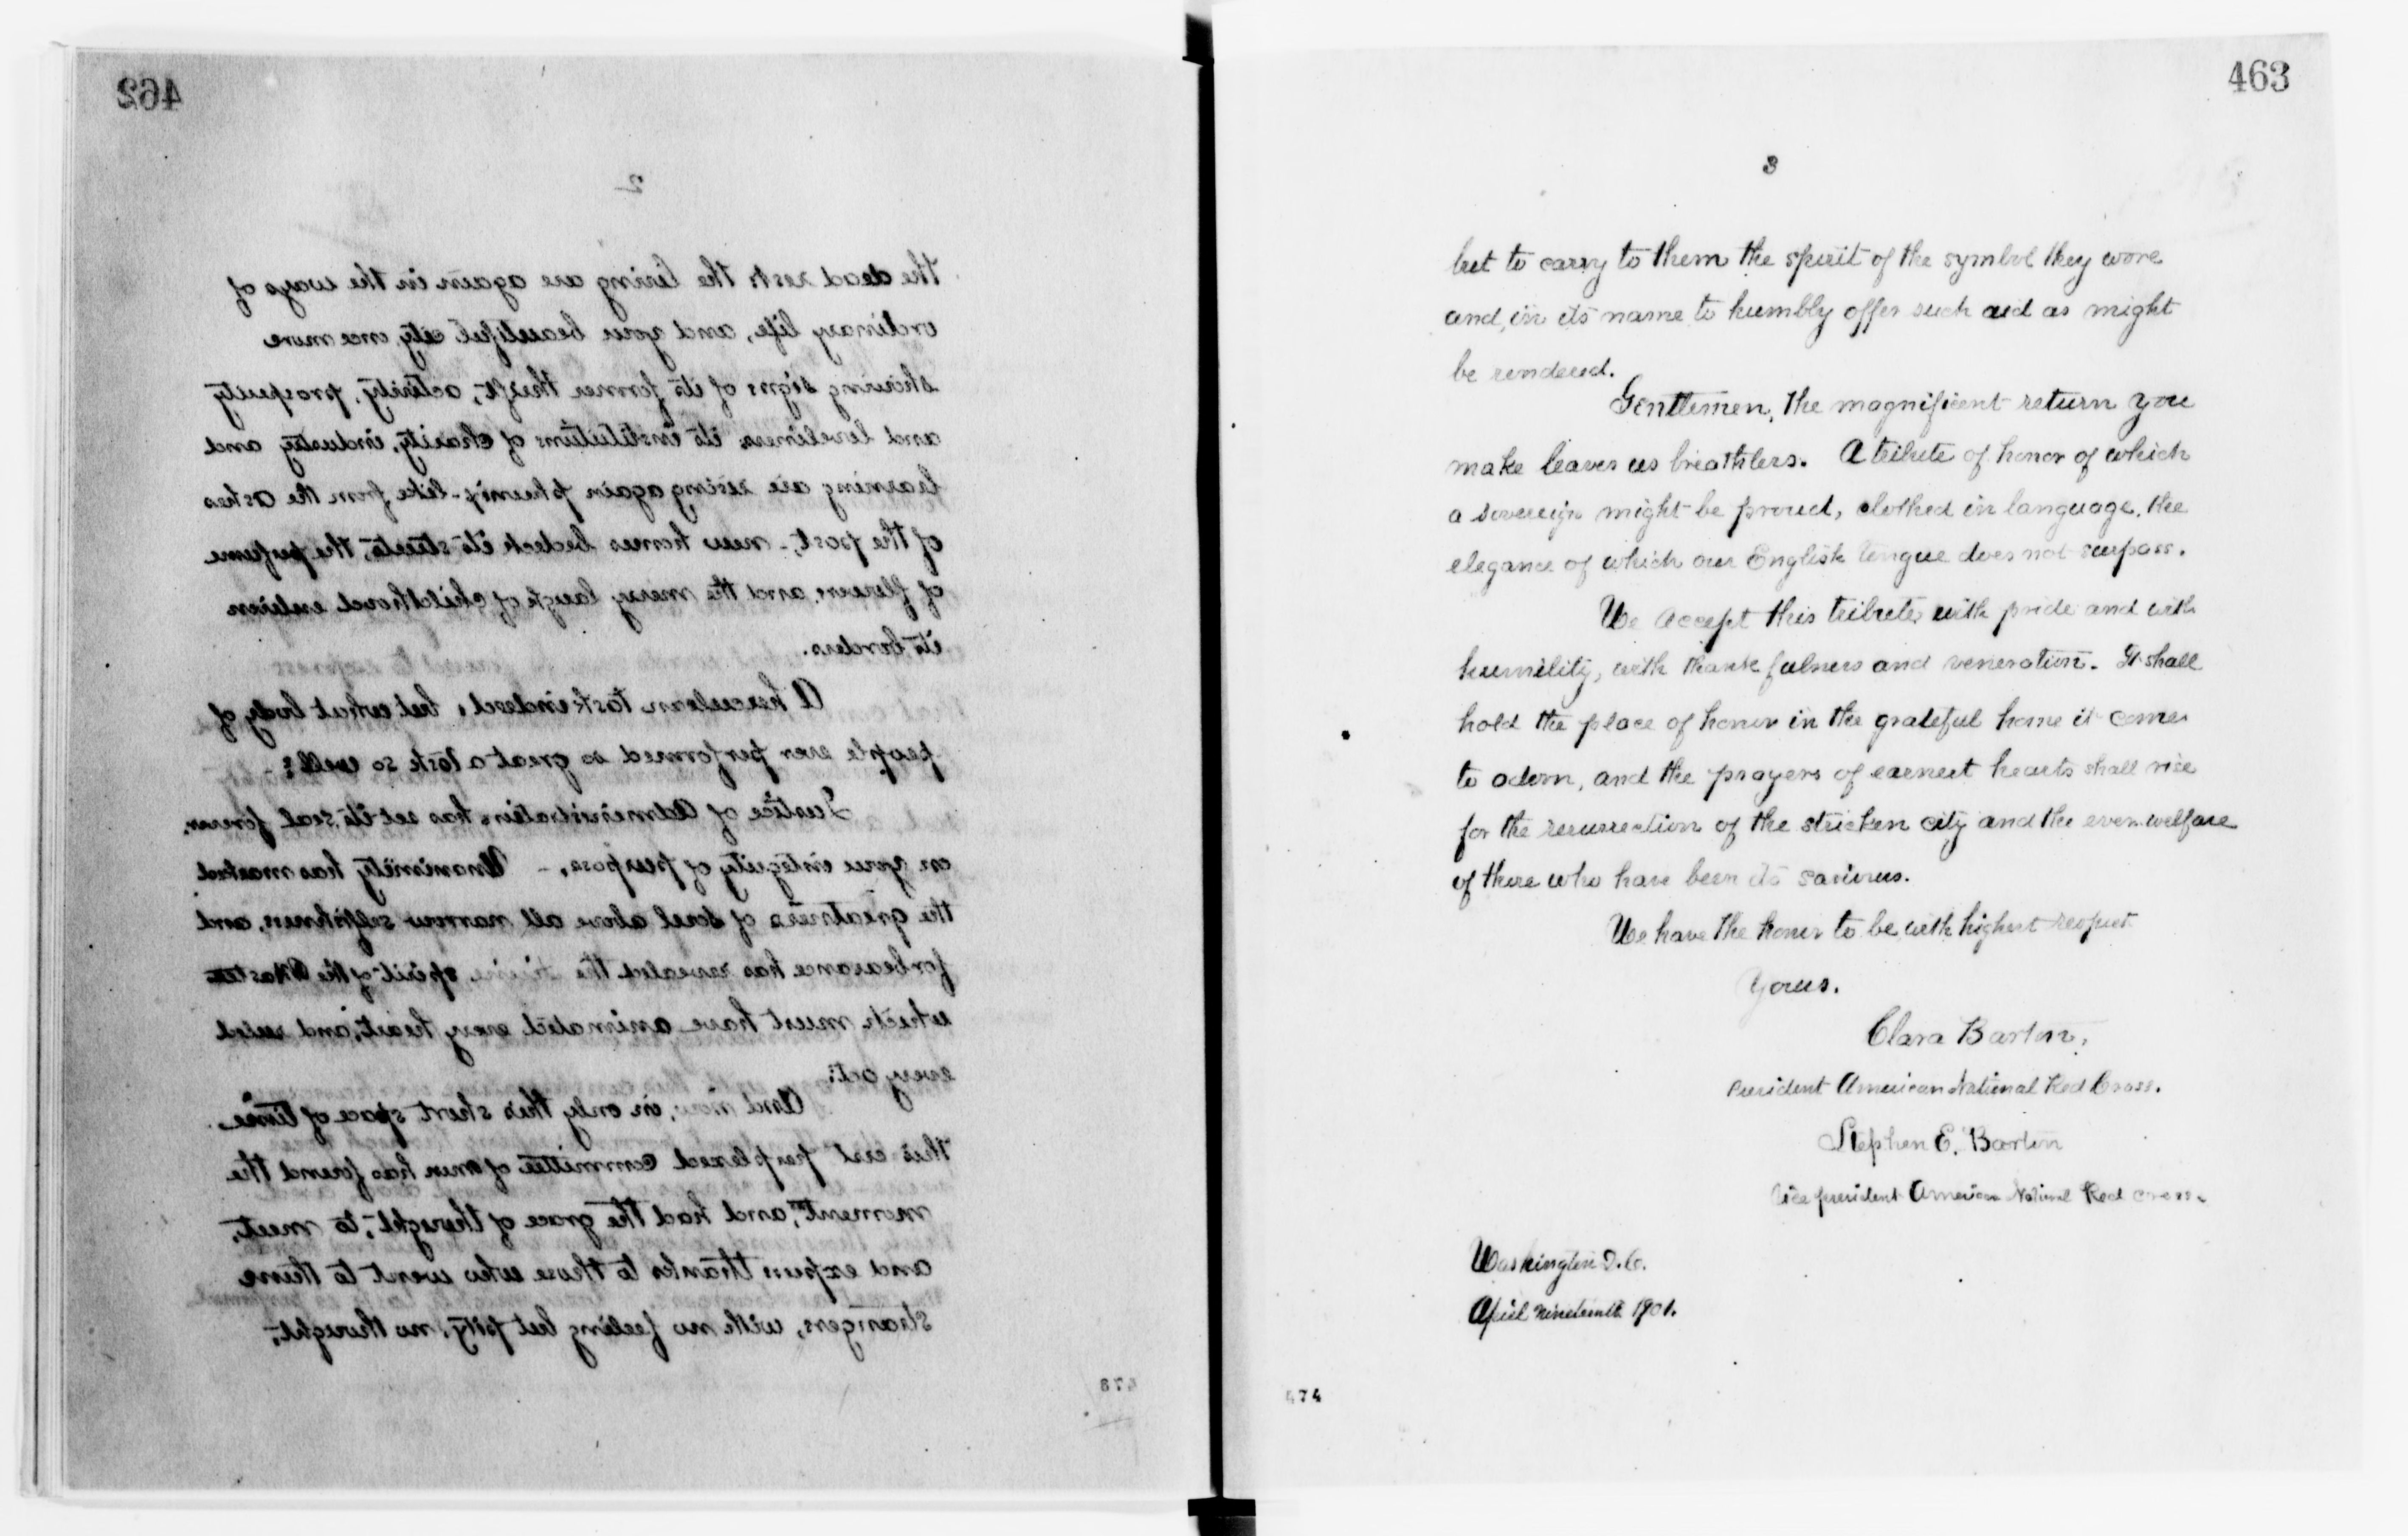 462
2
the dead rests the living are again in the ways of
ordinary life, and your beautiful city once more
showing signs of its former thrift, activity, prosperity
and loveliness its institutions of charity, industry and
learning are rising again phenix-like from the ashes
of the past, - new homes bedeck its streets, the perfume
of flowers and the merry laugh of childhood enliven
its borders.
A herculean task indeed, but what body of
people ever performed so great a task so well?
Justice of administration has set its seal forever
on your integrity of purpose, - Unanimity has marked
the greatness of soul above all narrow selfishness, and
forbearance has revealed the divine spirit of the Master
which must have animated every heart, and ruled
every act.
And now, in only this short space of time
this erst perplexed committee of men has found the
moment, and had the grace of thought, to meet,
and express thanks to those who went to them
strangers, with no feeling but pity, no thought,
473
463
3
but to carry to them the spirit of the symbol they wore
and, in its name to humbly offer such aid as might
be rendered.
Gentlemen, the magnificent return you
make leaves us breathless. A tribute of honor of which
a sovereign might be proud, clothed in language, the
elegance of which our English tongue does not surpass.
We accept this tribute, with pride and with
humility, with thankfulness and veneration. It shall
hold the place of honor in the grateful home it comes
to adorn, and the prayers of earnest hearts shall rise
for the resurrection of the stricken city and the ever welfare
of those who have been its saviours.
We have the honor to be with highest respect
Yours.
Clara Barton,
President American National Red Cross.
Stephen E. Barton
Vice president American National Red Cross.
Washington D.C.
April nineteenth 1901.
474